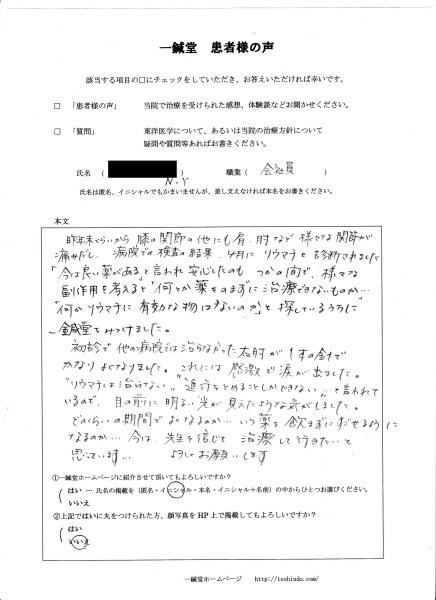 一鍼堂　患者様の声
該当する項目の□にチェックをしていただき、お答えいただければ幸いです。
□　「患者様の声」　当院で治療を受けられた感想、体験談などお聞かせください。
□　「質問」　東洋医学について、あるいは当院の治療方針について
疑問や質問等あればお書きください。
氏名（　N.Y　）　職業（　会社員　）
氏名は匿名、イニシャルでもかまいませんが、差し支えなければ本名をお書きください。
本文
昨年末ぐらいから膝の関節の他にも肩、肘など様々な関節が
痛みだし、病院での検査の結果、4月にリウマチと診断されました
「今は良い薬がある」と言われ安心したのも　つかの間で、様々な
副作用を考えると「何とか薬をのまずに治療できないものか…
「何かリウマチに有効な物はないのか」と探しているうちに
一鍼堂をみつけました。
初診で他の病院では治らなかった右肘が1本の針で
かなりよくなりました。これには感激で涙が出ました。
"リウマチは治らない" "進行をとめることしかできない"…と言われて
いるので、目の前に明るい光が見えたような気がしました。
どのくらいの期間でよくなるのか…いつ薬を飲まずにすごせるように
になるのか…今は、先生を信じて治療して行きたいと
思っています…　よろしくお願いします
①一鍼堂ホームページに紹介させて頂いてもよろしいですか？
はい … 氏名の掲載を（匿名・イニシャル・本名・イニシャル＋名前）の中からひとつお選びください。
いいえ
②上記ではいに丸をつけられた方、顔写真をHP上で掲載してもよろしいですか？
はい
いいえ
一鍼堂ホームページ　http://isshindo.com/